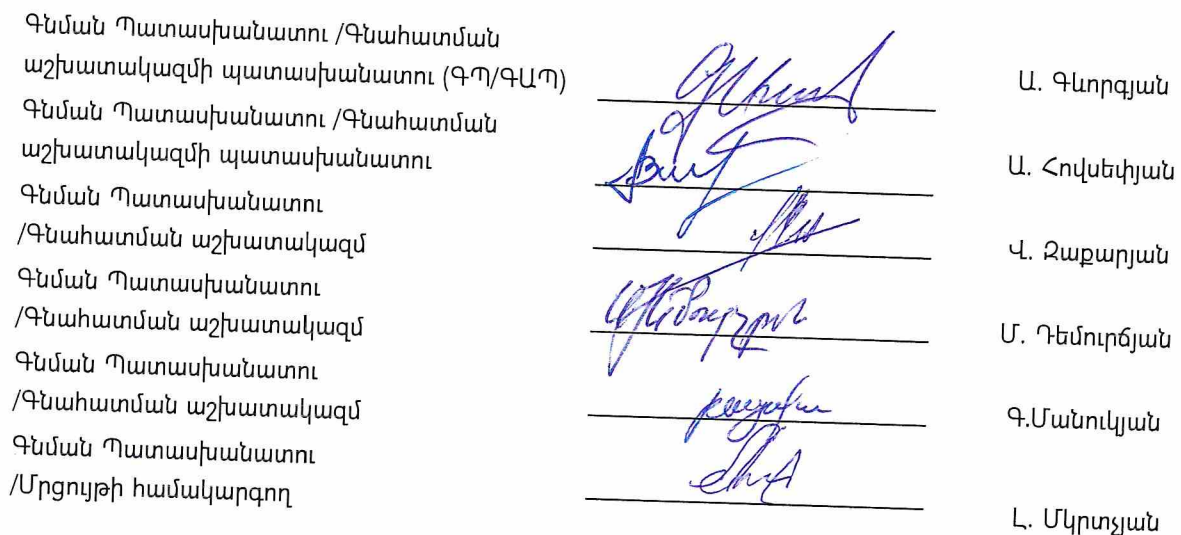 Գնման Պատասխանատու /Գնահատման
աշխատակազմի պատասխանատու (ԳՊ/ԳԱՊ)
Ա. Գևորգյան
Գնման Պատասխանատու /Գնահատման
աշխատակազմի պատասխանատու
Ա. Հովսեփյան
Գնման Պատասխանատու
/Գնահատման աշխատակազմ
Վ. Զաքարյան
Գնման Պատասխանատու
/Գնահատման աշխատակազմ
Մ. Դեմուրճյան
Գնման Պատասխանատու
/Գնահատման աշխատակազմ
Գ.Մանուկյան
Գնման Պատասխանատու
/Մրցույթի համակարգող
Լ. Մկրտչյան